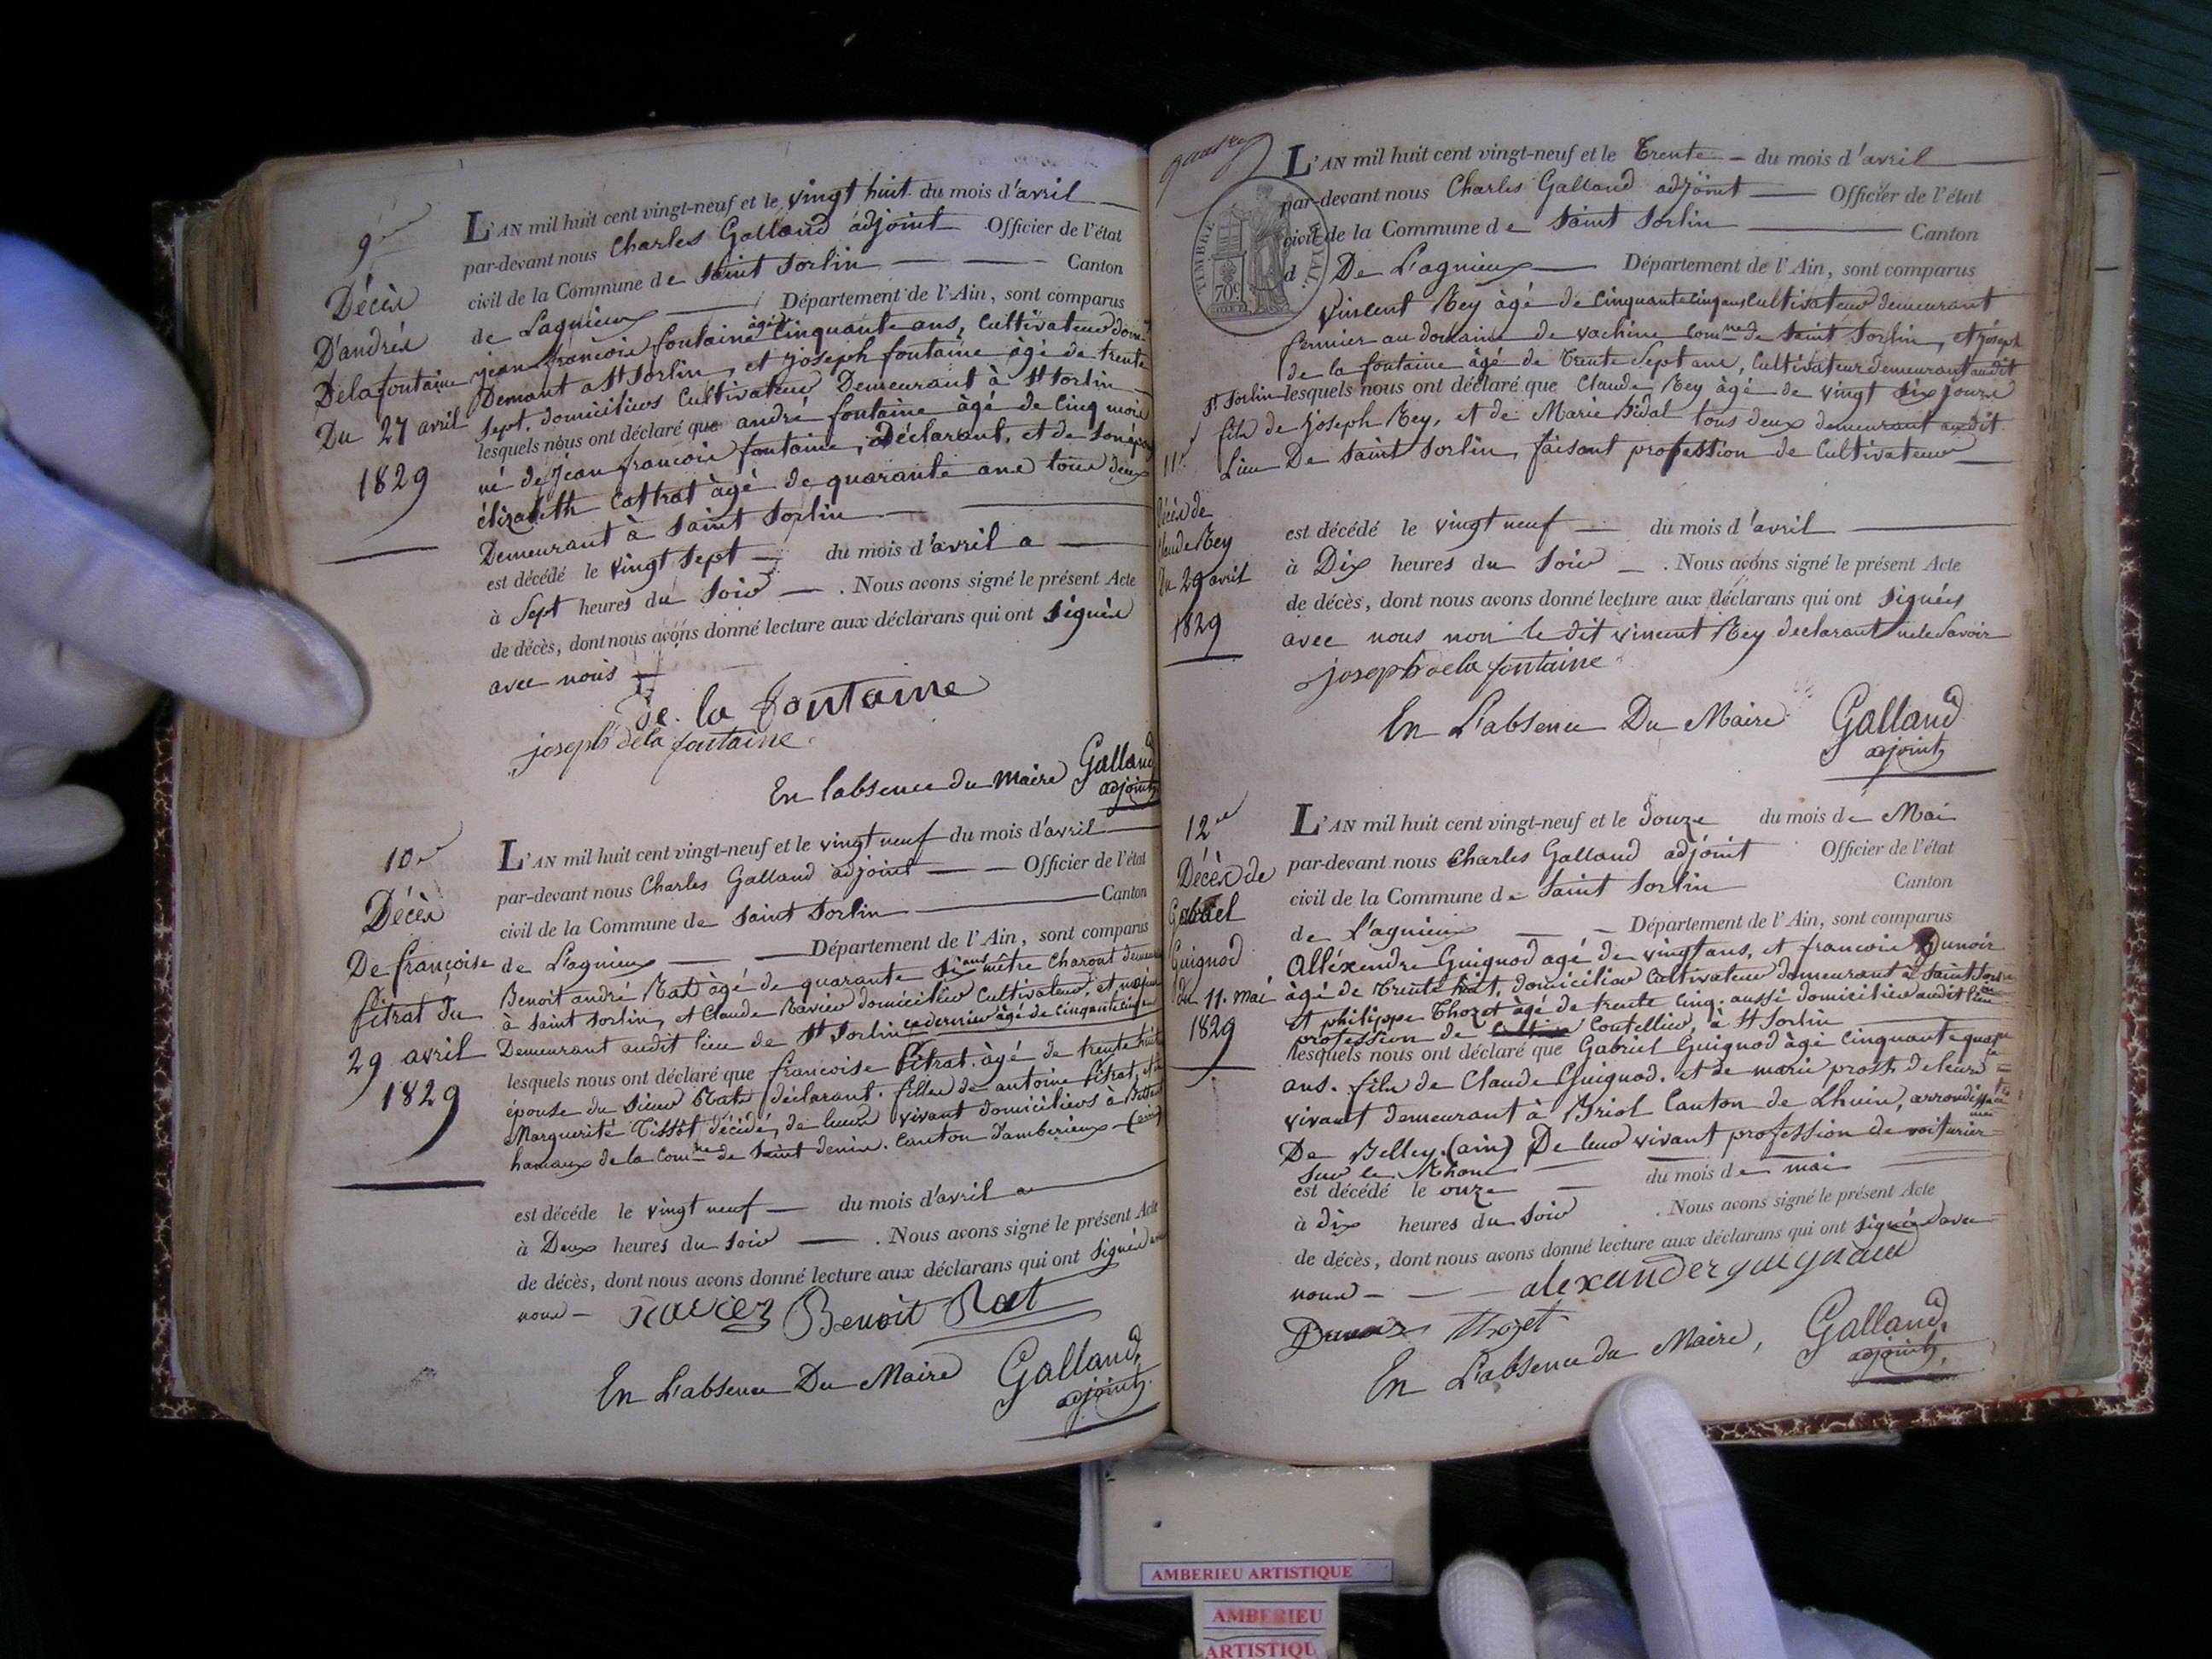 9me
Décès
D'andrés
Delafontaine
Du 27 avril
1829
L'AN mil huit cent vingt-neuf et le vingt huit du mois d'avril
par-devant nous Charles Galland adjoint Officier de l'état
civil de la Commune de Saint Sorlin Canton
de Lagnieux Département de l'Ain, sont comparus
jean françois fontaine âgé de Cinquante ans, Cultivateur
Demant a St Sorlin, et joseph fontaine âgé de trente
sept, domiciliers Cultivateur Demeurant à St Sorlin
lesquels nous ont déclaré que andré fontaine âgé de Cinq mois
né de Jean françois fontaine, Déclarant, et de son
élizabeth Cottrat âgé de quarante ans tous deux
Demeurant à Saint Sorlin
est décédé le vingt sept du mois d'avril a
à Sept heures du Soir . Nous avons signé le présent Acte
de décès, dont nous avons donné lecture aux déclarans qui ont signés
avec nous
De la fontaine
joseph dela fontaine
En labsence du Maire Galland
adjoint
10e
Décès
De françoise
Pitrat Du
29 avril
1829
L'AN mil huit cent vingt-neuf et le vingt neuf du mois d'avril
par-devant nous Charles Galland adjoint Officier de l'état
civil de la Commune de Saint Sorlin Canton
de Lagnieux Département de l'Ain, sont comparus
Benoit andré Rat âgé de quarante six ans mêtre Charont
à Saint Sorlin, et Claude Ravier domicilier Cultivateur, et
Demeurant audit lieu de St Sorlin ce dernier âgé de Cinquante cinq
lesquels nous ont déclaré que francoise Pitrat âgé de trente huit
épouse du Sieur Rat déclarant. fille de antoine Pitrat, et
Marguerite Tissot décédé, de leur vivant domiciliers à
hamaux de la Comne de Saint denis. Canton d'amberieux (ain)
est décéde le vingt neuf du mois d'avril a
à Deux heures du Soir . Nous avons signé le présent Acte
de décès, dont nous avons donné lecture aux déclarans qui ont signés
nous Ravier Benoit Rat
En L'absence Du Maire Galland,
adjoint
TIMBRE ROYAL.
70c
11e
Décès de
Claude Rey
Du 29 avril
1829
L'AN mil huit cent vingt-neuf et le Trente du mois d'avril
par-devant nous Charles Galland adjoint Officier de l'état
civil de la Commune de Saint Sorlin Canton
d De Lagnieux Département de l'Ain, sont comparus
Vincent Rey âgé de Cinquante cinq ans Cultivateur demeurant
fermier au domaine de vachine comne de Saint Sorlin, et joseph
de la fontaine âgé de Trente Sept ans, Cultivateur demeurant audit
St Sorlin lesquels nous ont déclaré que Claude Rey âgé de vingt six jours
fils de Joseph Rey, et de Marie Bidal tous deux demeurant audit
Lieu De Saint Sorlin, faisant profession de Cultivateur
est décédé le vingt neuf du mois d'avril
à Dix heures du Soir . Nous avons signé le présent Acte
de décès, dont nous avons donné lecture aux déclarans qui ont signés
avec nous non le dit vincent Rey declarant ne le Savoir
joseph dela fontaine
En L'absence Du Maire Galland
adjoint
12e
Décès de
Gabriel
Guignod
du 11. mai
1829
L'AN mil huit cent vingt-neuf et le Douze du mois de Mai
par-devant nous Charles Galland adjoint Officier de l'état
civil de la Commune de Saint Sorlin Canton
de Lagnieux Département de l'Ain, sont comparus
Alléxendre Guignod agé de vingt ans, et francois Dunoir
âgé de trente huit, domicilier Cultivateur demeurant à Saint Sorlin
et philippe Thozet âgé de trente Cinq. aussi domicilier audit lieu
profession de Coutellier, à St Sorlin
lesquels nous ont déclaré que Gabriel Guignod âgé Cinquante quatre
ans. fils de Claude Guignod. et de marie prost, de leur
vivant demeurant à Briol Canton de Lhuin, arrondisse
De Belley. (ain) De leur vivant profession de voiturier
Sur le Rhone
est décédé le onze du mois de mai
à dix heures du Soir . Nous avons signé le présent Acte
de décès, dont nous avons donné lecture aux déclarans qui ont signés avec
nous alexander guignaud
Dunoir Thozet
En L'absence du Maire, Galland,
adjoint
AMBERIEU ARTISTIQUE
AMBERIEU
ARTISTIQU